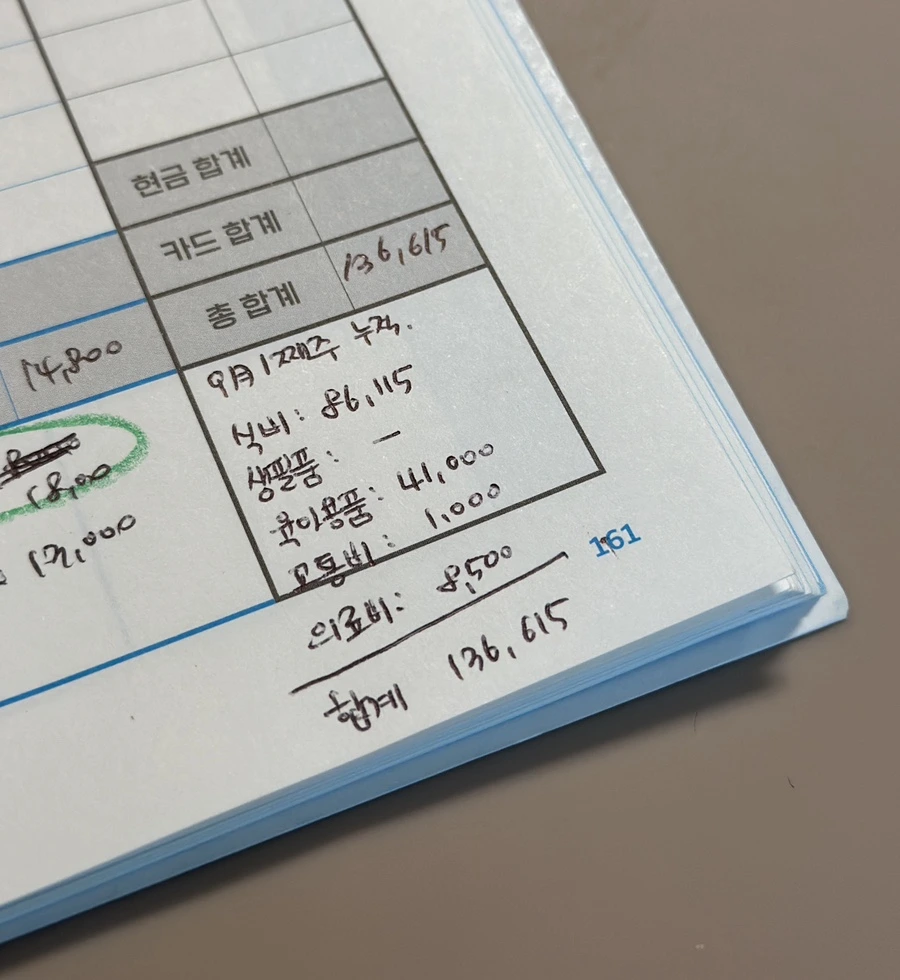 현금 합계
카드 합계
총 합계 136,615
14,800
18,00
12,000
9월 1째주 누적.
식비 : 86,115
생필품 : -
육아용품 : 41,000
교통비 : 1,000
의료비 : 8,500
총합계 136,615
161